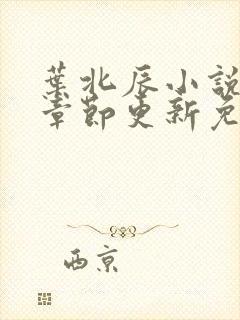 葉北辰小說
章節更新免
西京